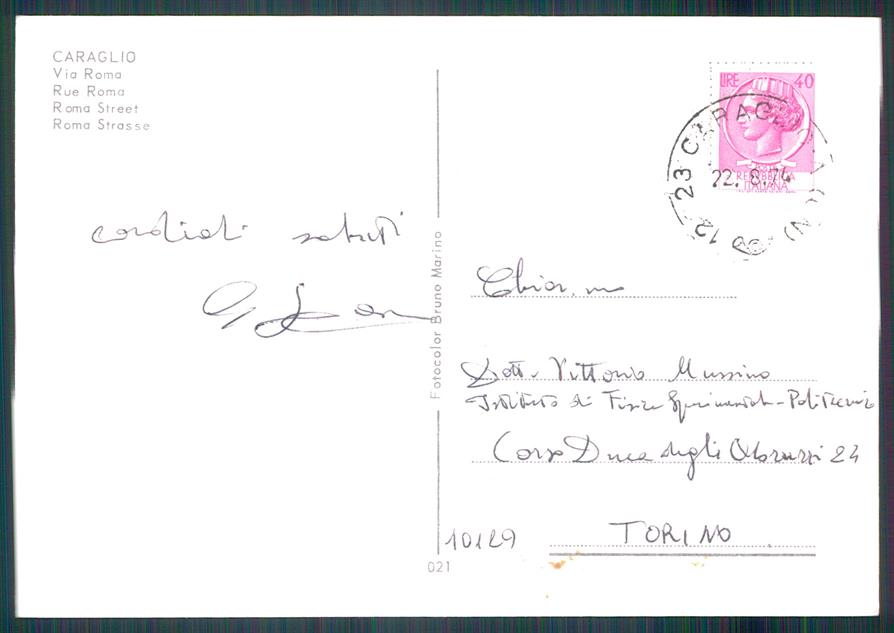 CARAGLIO
Via Roma
Rue Roma
Roma Street
Roma Strasse
LIRE 40
POSTE
REPUBBLICA
ITALIANA
CARAGLIO (CN)
22. 8.74
12
23
cordiali saluti
Fotocolor Bruno Marino
Chiar.mo
Dott. Vittorio Mussino
Istituto di Fisica Sperimentale - Politecnico
Corso Duca degli Abruzzi 24
10129 TORINO
021